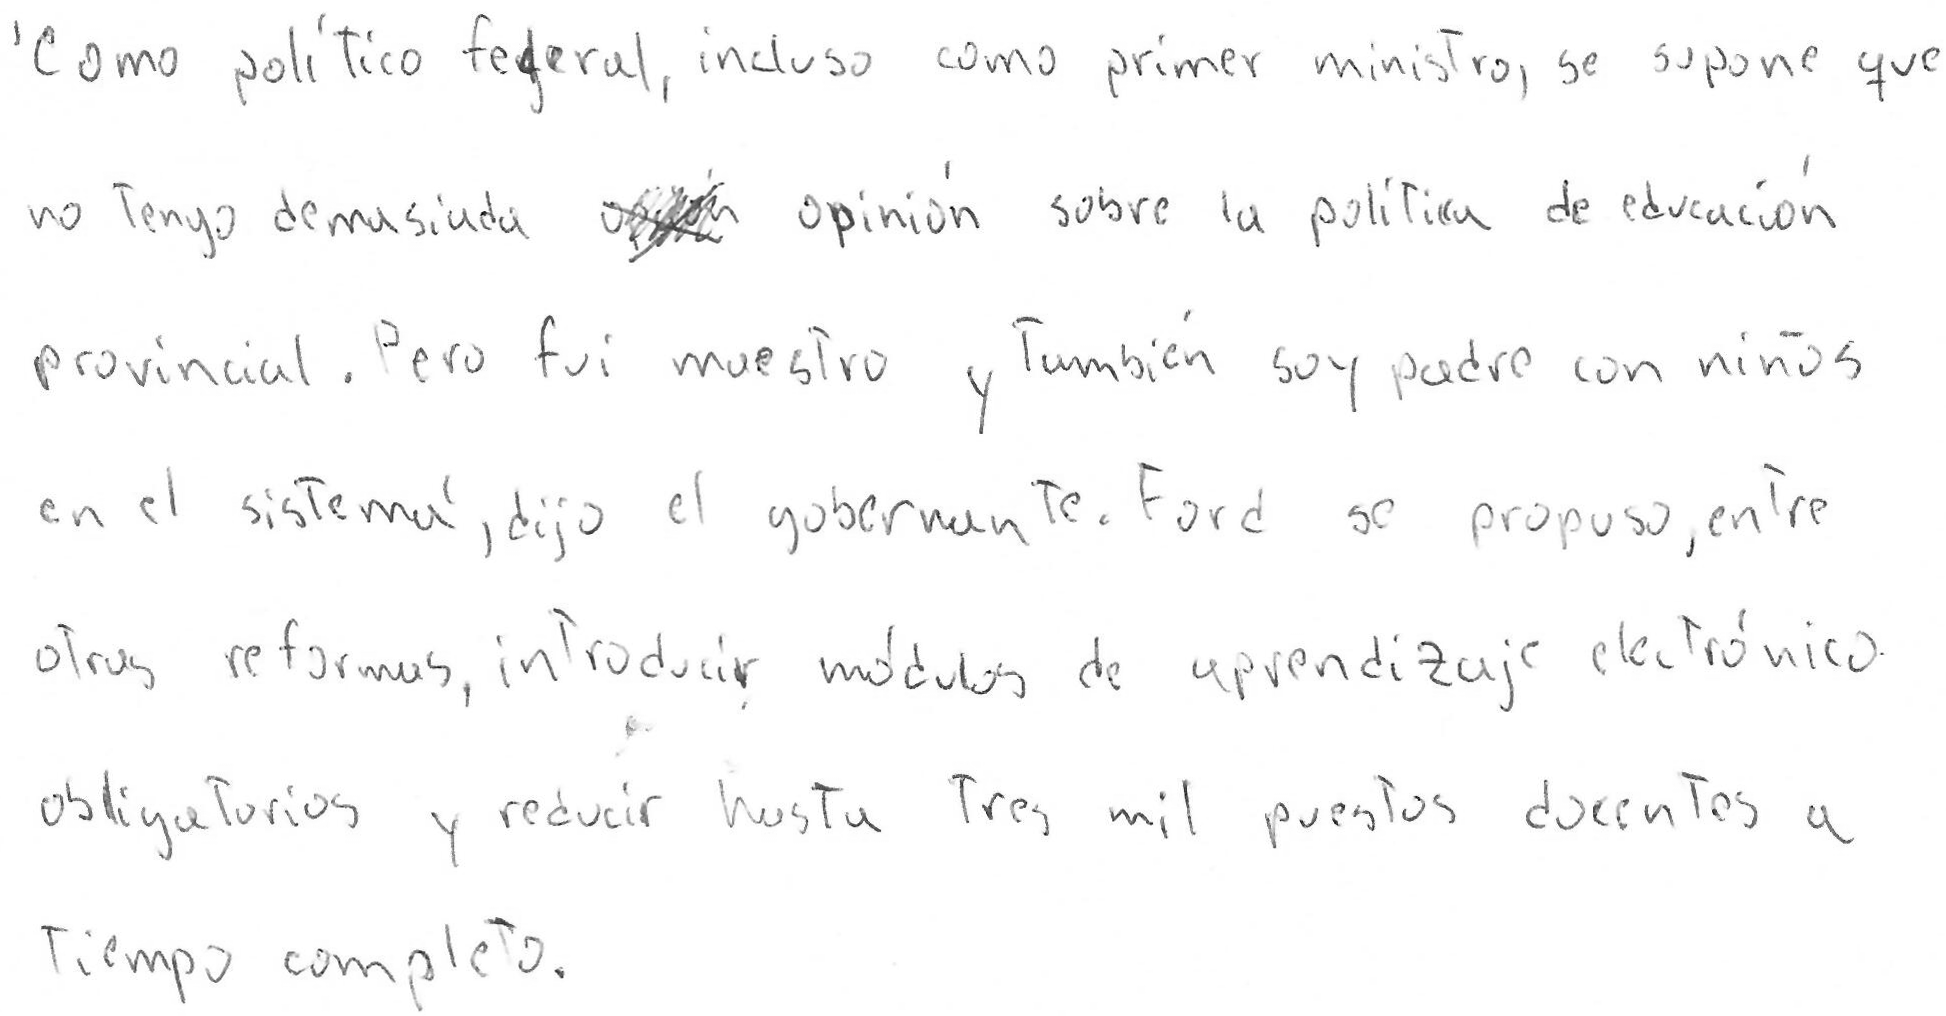 'Como político federal, incluso como primer ministro, se supone que
no tengo demasiada opinión sobre la política de educación
provincial. Pero fui maestro y también soy padre con niños
en el sistema', dijo el gobernante. Ford se propuso, entre
otras reformas, introducir módulos de aprendizaje electrónico
obligatorios y reducir hasta tres mil puestos docentes a
tiempo completo.